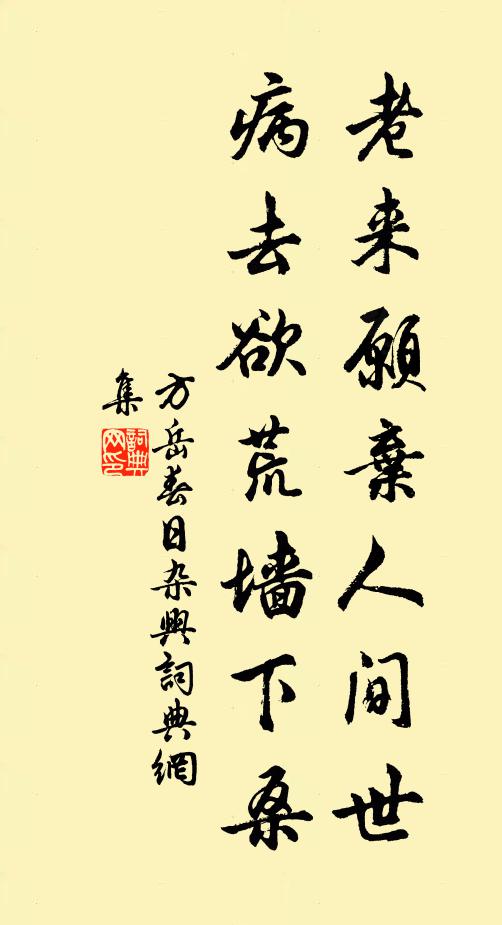 老来願棄人间世
病去欲荒墙下桑
方岳春日杂興詞典網
集
詞典网印